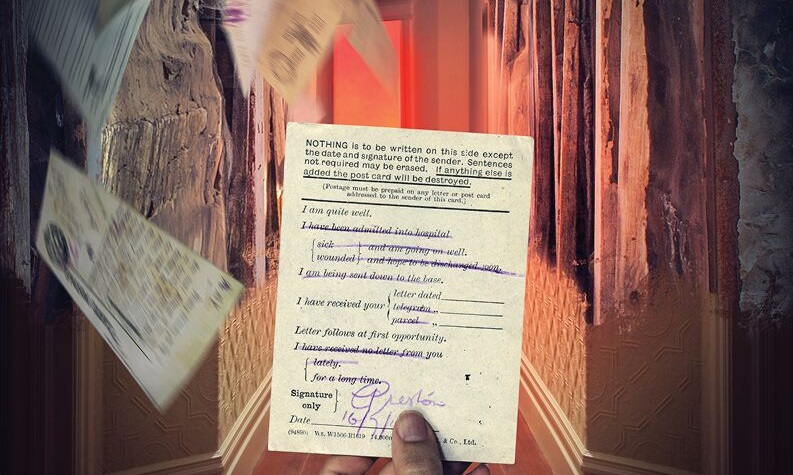 NOTHING is to be written on this side except
the date and signature of the sender. Sentences
not required may be erased. If anything else is
added the post card will be destroyed.
(Postage must be prepaid on any letter or post card
addressed to the sender of this card.)
I am quite well.
I have been admitted into hospital
sick and am going on well.
wounded and hope to be discharged soon.
I am being sent down to the base.
I have received your
letter dated
telegram „
parcel „
Letter follows at first opportunity.
I have received no letter from you
lately.
for a long time.
Signature
only
Preston
Date
(94890) Wt. W1566-R1619 & Co., Ltd.